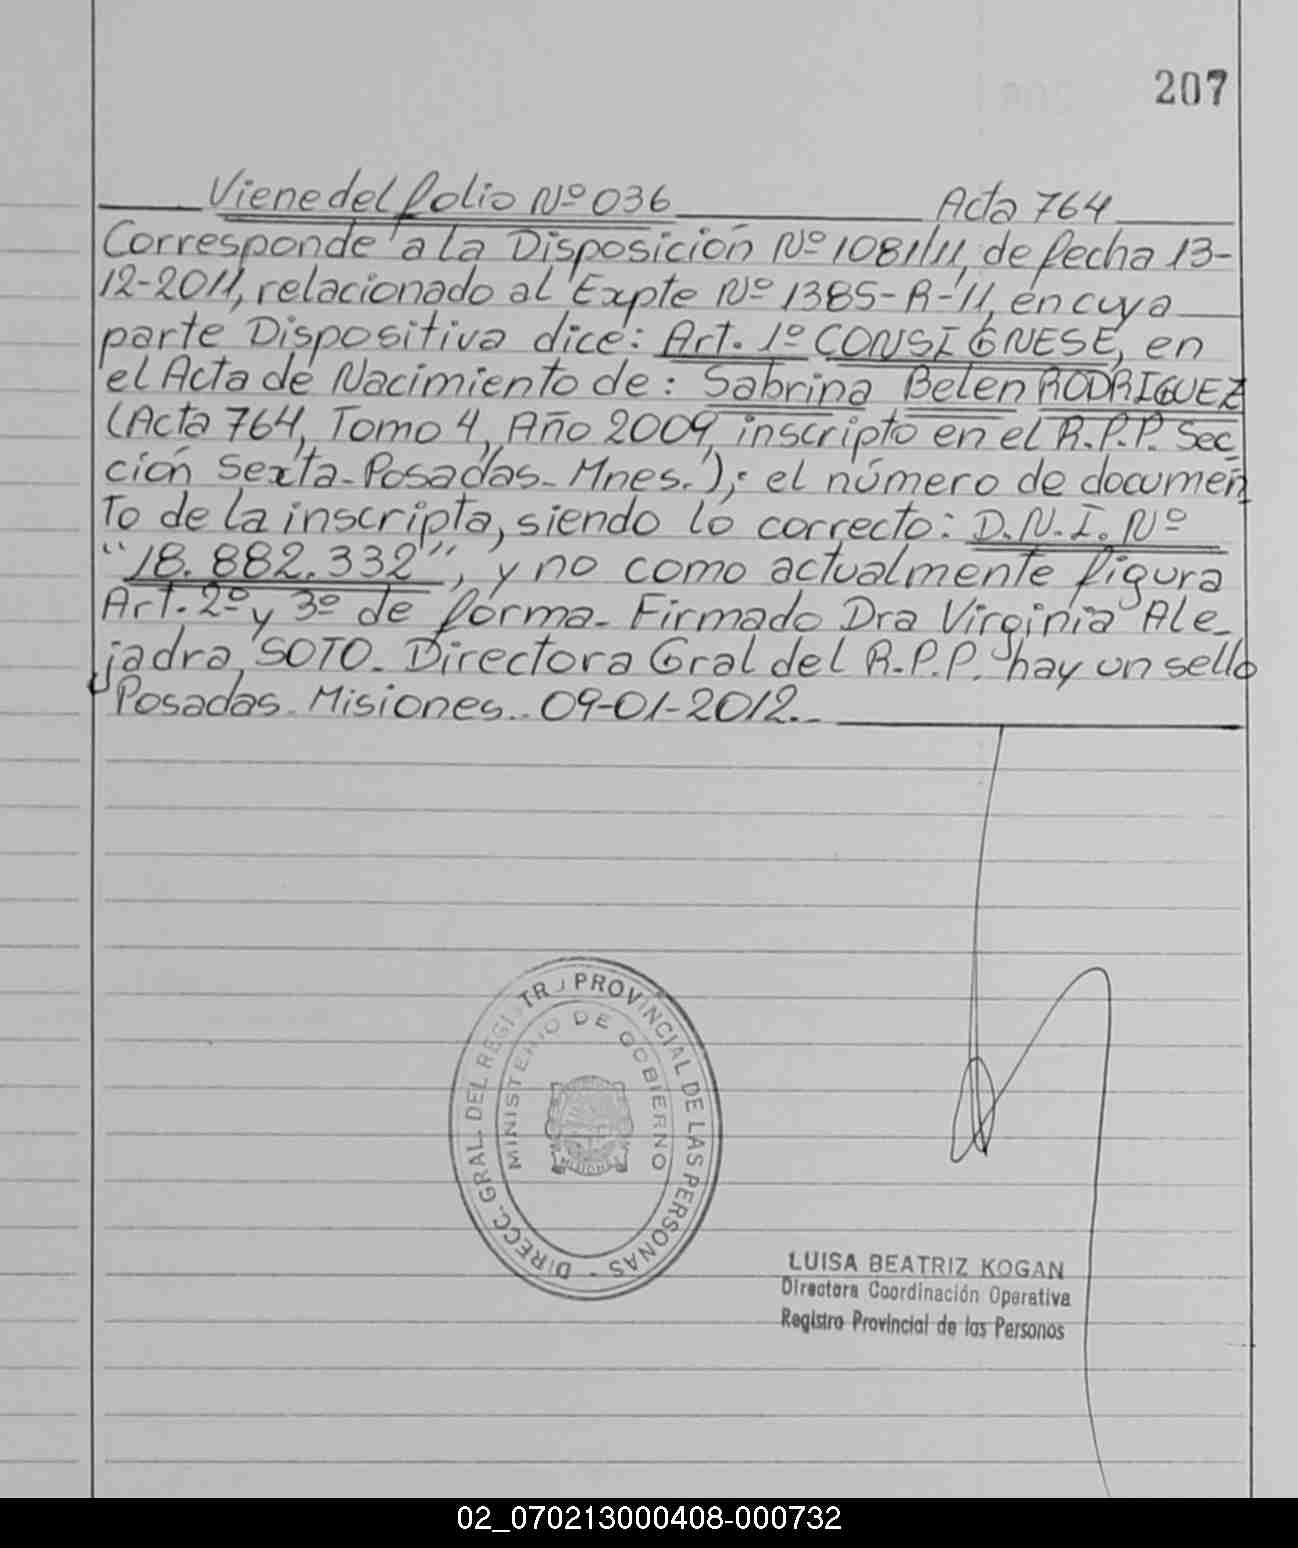 207
Viene del folio Nº 036 Acta 764
Corresponde a la Disposición Nº 1081/11, de fecha 13-
12-2011, relacionado al Expte Nº 1385-R-11, en cuya
parte Dispositiva dice: Art. 1º CONSIGNESE, en
el Acta de Nacimiento de: Sabrina Belen RODRIGUEZ
(Acta 764, Tomo 4, Año 2009, inscripto en el R.P.P. Sec
ción Sexta-Posadas-Mnes.); el número de documen
to de la inscripta, siendo lo correcto: D.N.I. Nº
"18.882.332", y no como actualmente figura
Art. 2º y 3º de forma- Firmado Dra Virginia Ale-
jadra SOTO- Directora Gral del R.P.P. hay un sello
Posadas- Misiones.. 09-01-2012..
DIRECC. GRAL. DEL REGISTRO PROVINCIAL DE LAS PERSONAS -
MINISTERIO DE GOBIERNO
LUISA BEATRIZ KOGAN
Directora Coordinación Operativa
Registro Provincial de las Personas
02_070213000408-000732